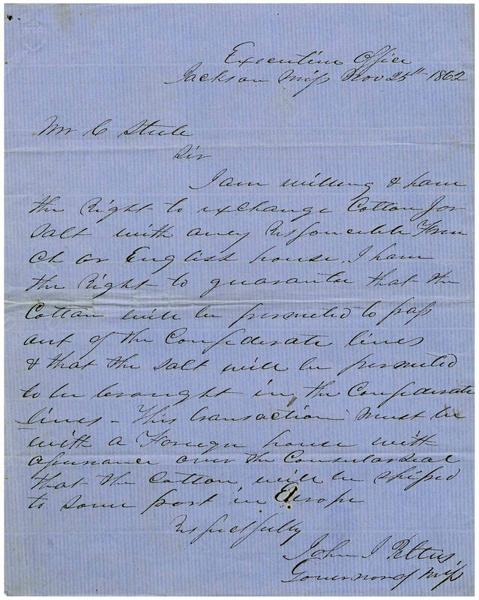 Executive Office
Jackson Miss Nov 25th 1862
Mr C Steele
Sir
I am willing & have
the Right to exchange Cotton for
Salt with any Responcible Fren
ch or English house. I have
the Right to guarantee that the
Cotton will be permited to pass
out of the Confederate lines
& that the salt will be permited
to be brought in the Confederate
lines - This transaction must be
with a Foreign house with
assurance over the Consular Seal
that the Cotton will be shiped
to some port in Europe
Respectfully
John J Pettus
Governor of Miss